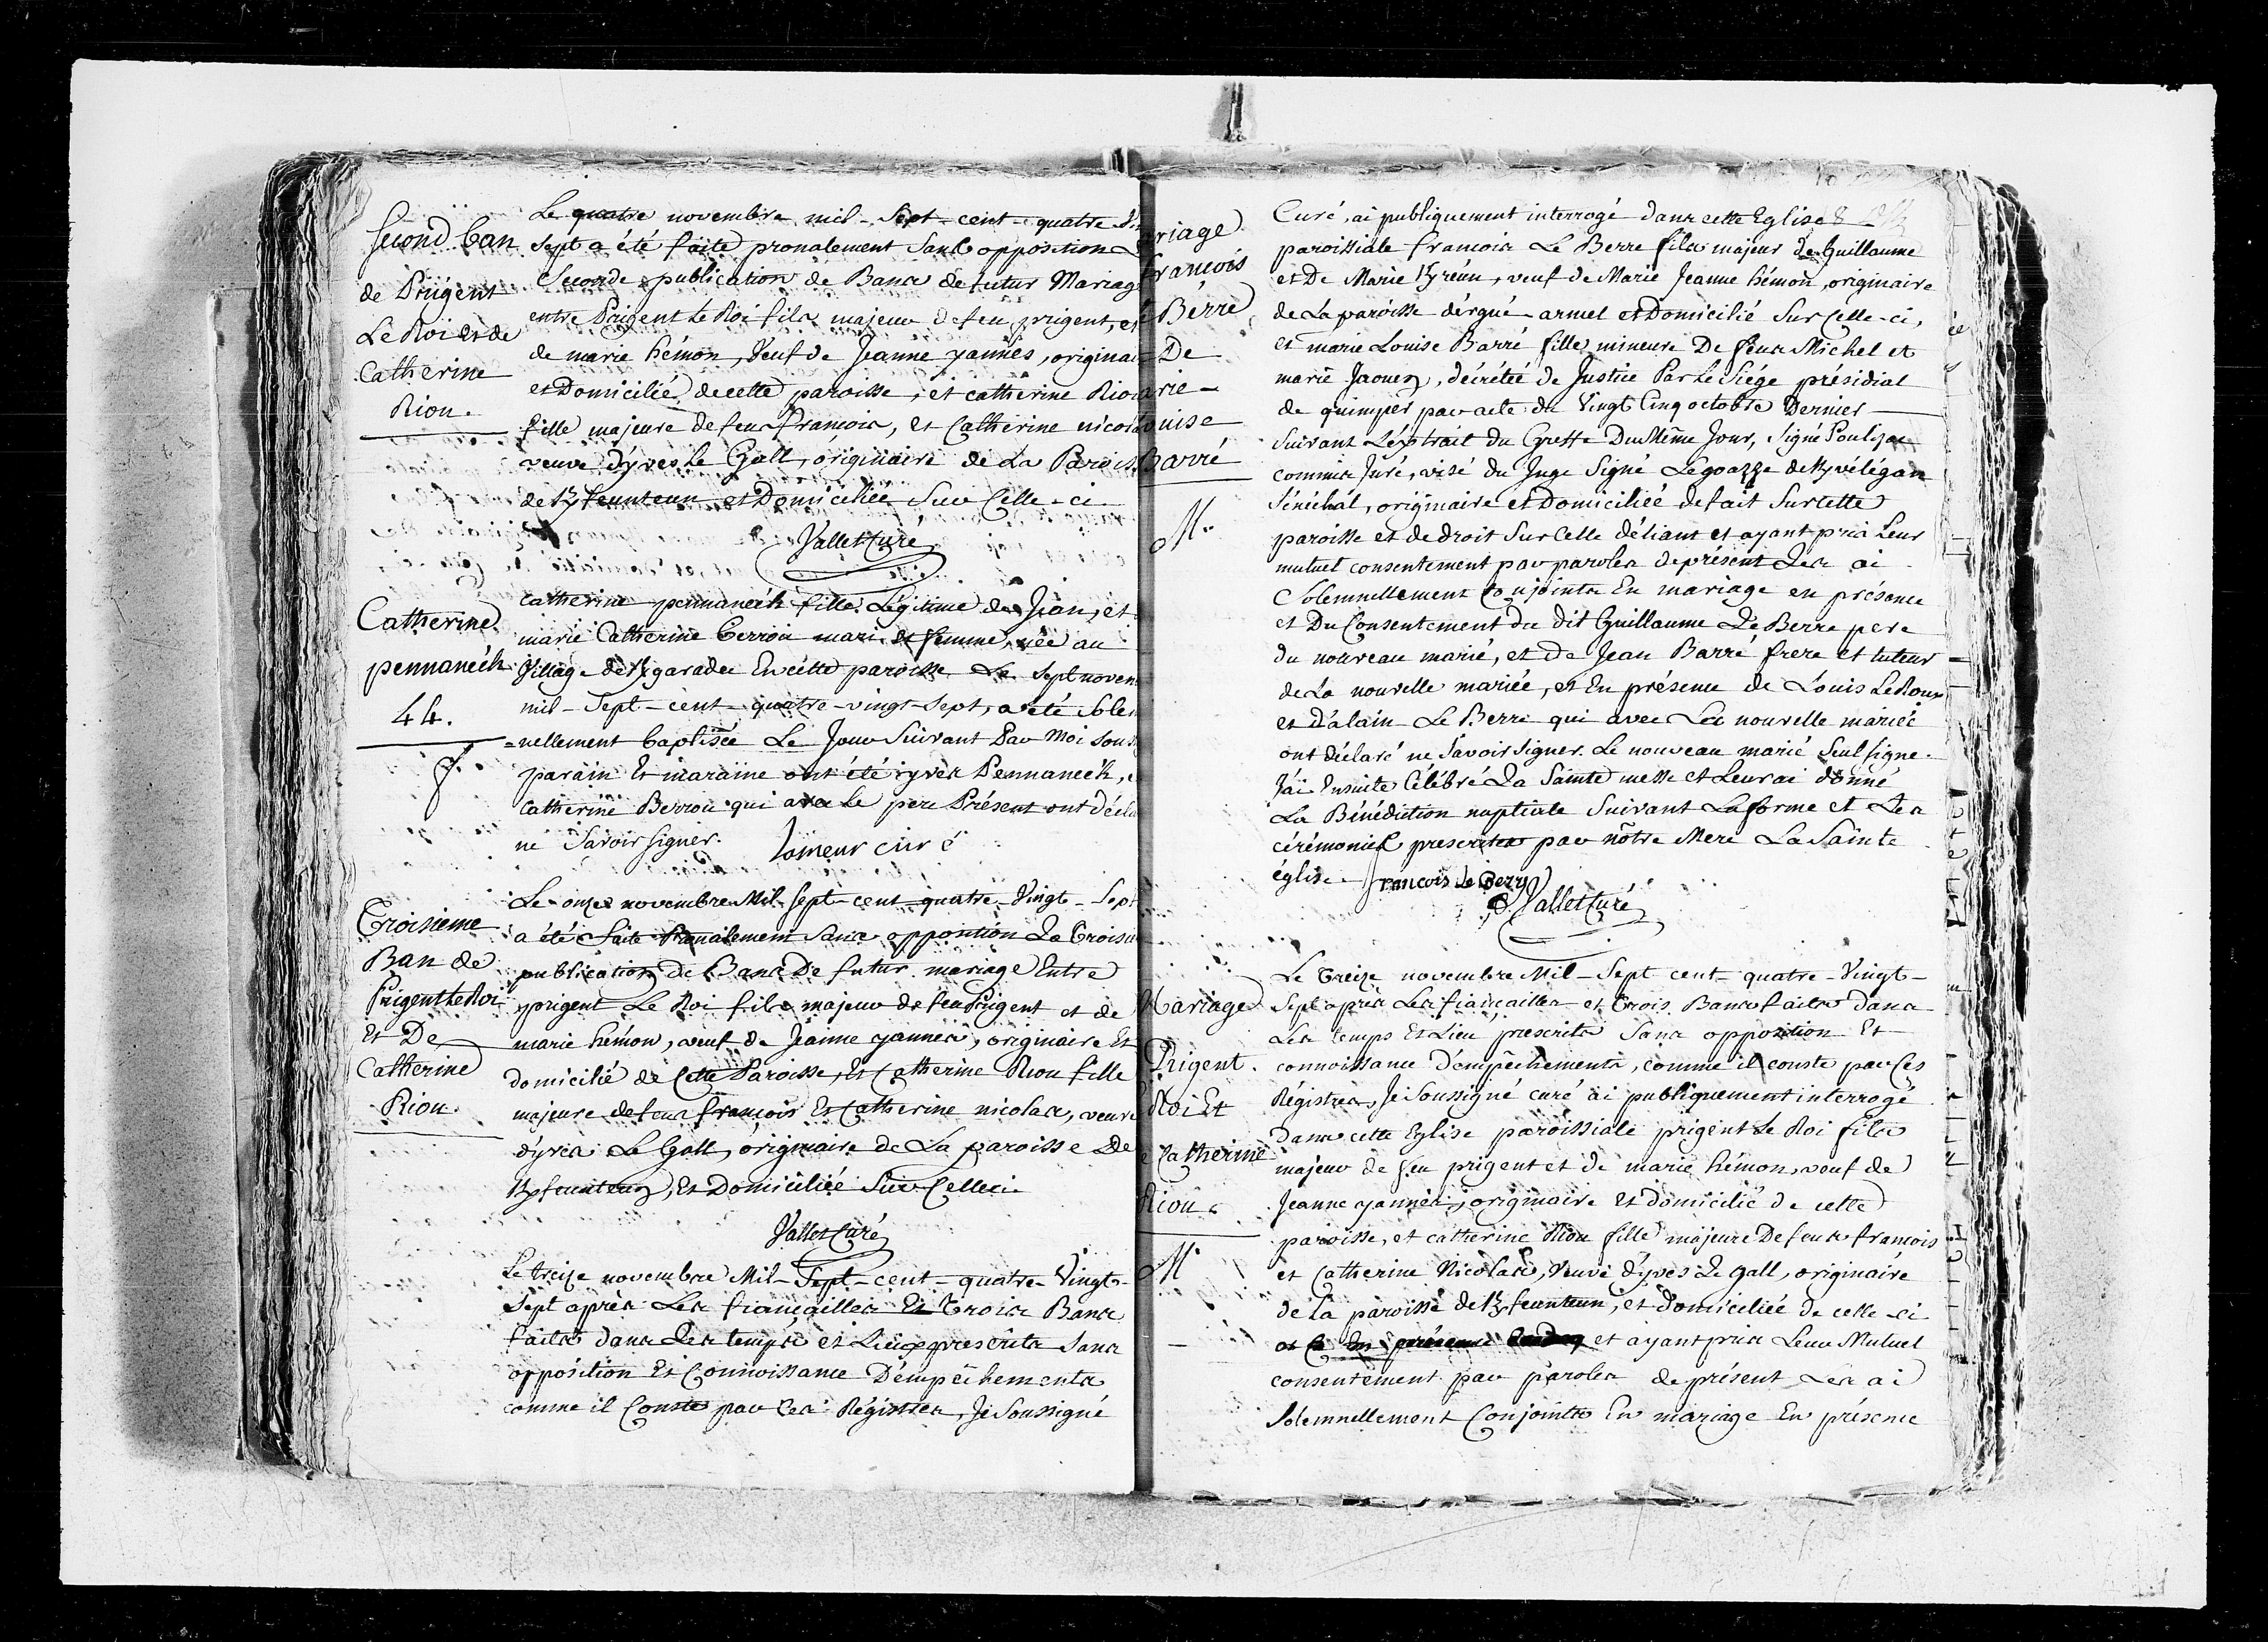 Second ban
de Prigent
Le Roi et de
Catherine
Riou.
Le quatre novembre mil-Sept-cent-quatre
Sept a été faite pronalement Sans opposition La
Seconde publication de Bans de futur Mariage
entre Prigent Le Roi fils majeur de feu prigent, et
de marie hémon, Veuf de Jeanne yannes, originaire
et Domicilié de cette paroisse, et catherine Riou
fille majeure de feus françois, et Catherine nicolas
veuve d'yves Le Gall, originaire de La Paroisse
de Kfeunteun et Domiciliée Sur Celle-ci
Vallet Curé
Catherine
pennanéch
44.
catherine pennanéch fille Légitime de Jean, et
marie Catherine Berrou mari et femme, née au
Village de Kgaradec En cette paroisse Le Sept novem
mil-Sept-cent-quatre-vingt-Sept, a été Solem
=nellement baptisée Le Jour Suivant Par Moi Sous
parain Et maraine ont été yves Pennanéch, et
Catherine Berrou qui avec Le pere Présent ont décla
né Savoir signer. curé
Troisieme
Ban de
Prigent Le Roi
Et De
Catherine
Riou.
Le onze novembre Mil-Sept-cent-quatre-Vingt-Sept
a été faite Pronalement Sans opposition La troisie
publication de Bans De futur mariage Entre
prigent Le Roi fils majeur de feu Prigent et de
marie hémon, veuf de Jeanne yannes, originaire Et
domicilié de Cette Paroisse, Et Catherine Riou fille
majeure de feus françois Et Catherine nicolas, veuve
d'yves Le Gall, originaire de La paroisse De
Kfeunteun, Et Domiciliée Sur Celleci.
Vallet Curé
Le treize novembre Mil-Sept-cent-quatre-Vingt-
Sept après Les fiançailles Et trois Bans
faits dans Les temps et Lieux prescrits Sans
opposition Et Connoissance D'empêchements
comme il Conste par Ces Régistres, Je Soussigné
riage
françois
Berre
De
arie-
ouise
Barré
M.
Curé, ai publiquement interrogé dans cette Eglise
paroissiale francois Le Berre fils majeur de Guillaume
et De Marie Kreün, veuf de Marie Jeanne hémon, originaire
de La paroisse d'ergué-armel et Domicilié Sur Celle-ci,
et marie Louise Barré fille mineure De feus Michel et
marie Jaouen, décrétée de Justice Par Le Siége présidial
de quimper par acte du Vingt Cinq octobre Dernier
Suivant L'éxtrait du Greffe Du Même Jour, Signé
commis Juré, visé du Juge Signé Legoazre de Kvélégan
Sénéchal, originaire et Domiciliée de fait Sur Cette
paroisse et de droit Sur Celle d'éliant et ayant pris Leur
mutuel consentement par paroles de présent Les ai
Solemnellement Conjoints En mariage en présence
et Du Consentement du dit Guillaume Le Berre pere
du nouveau marié, et de Jean Barré frere et tuteur
de La nouvelle mariée, et En présence de Louis Le Roux
et d'alain Le Berre qui avec La nouvelle mariée
ont déclaré ne Savoir signer. Le nouveau marié Seul signe.
J'ai Ensuite Célébré La Sainte messe et Leur ai donné
La Bénédiction nuptiale Suivant La forme et Les
cérémonies prescrites par nôtre Mere La Sainte
église. françois Le Berre
Vallet Curé
Mariage
Prigent
Roi Et
Catherine
Riou.
M.
Le treize novembre Mil-Sept cent-quatre-Vingt-
Sept après Les fiançailles et trois Bans faits dans
Les temps Et Lieu prescrits Sans opposition Et
connoissance D'empêchements, comme il conste par Ces
Régistres, Je Soussigné curé ai publiquement interrogé
dans cette Eglise paroissiale prigent Le Roi fils
majeur de feu prigent et de marie hémon, veuf de
Jeanne yannes, originaire et domicilié de cette
paroisse, et catherine Riou fille majeure De feus francois
et Catherine Nicolas, Veuve d'yves Le gall, originaire
de la paroisse de Kfeunteun, et domiciliée de celle-ci
et ayant pris Leur Mutuel
consentement par paroles de présent Les ai
Solemnellement Conjoints En mariage En présence